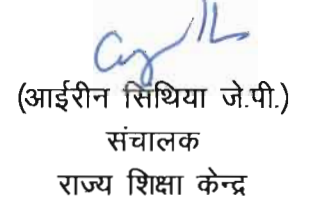 (आईरीन सिंथिया जे.पी.)
संचालक
राज्य शिक्षा केन्द्र